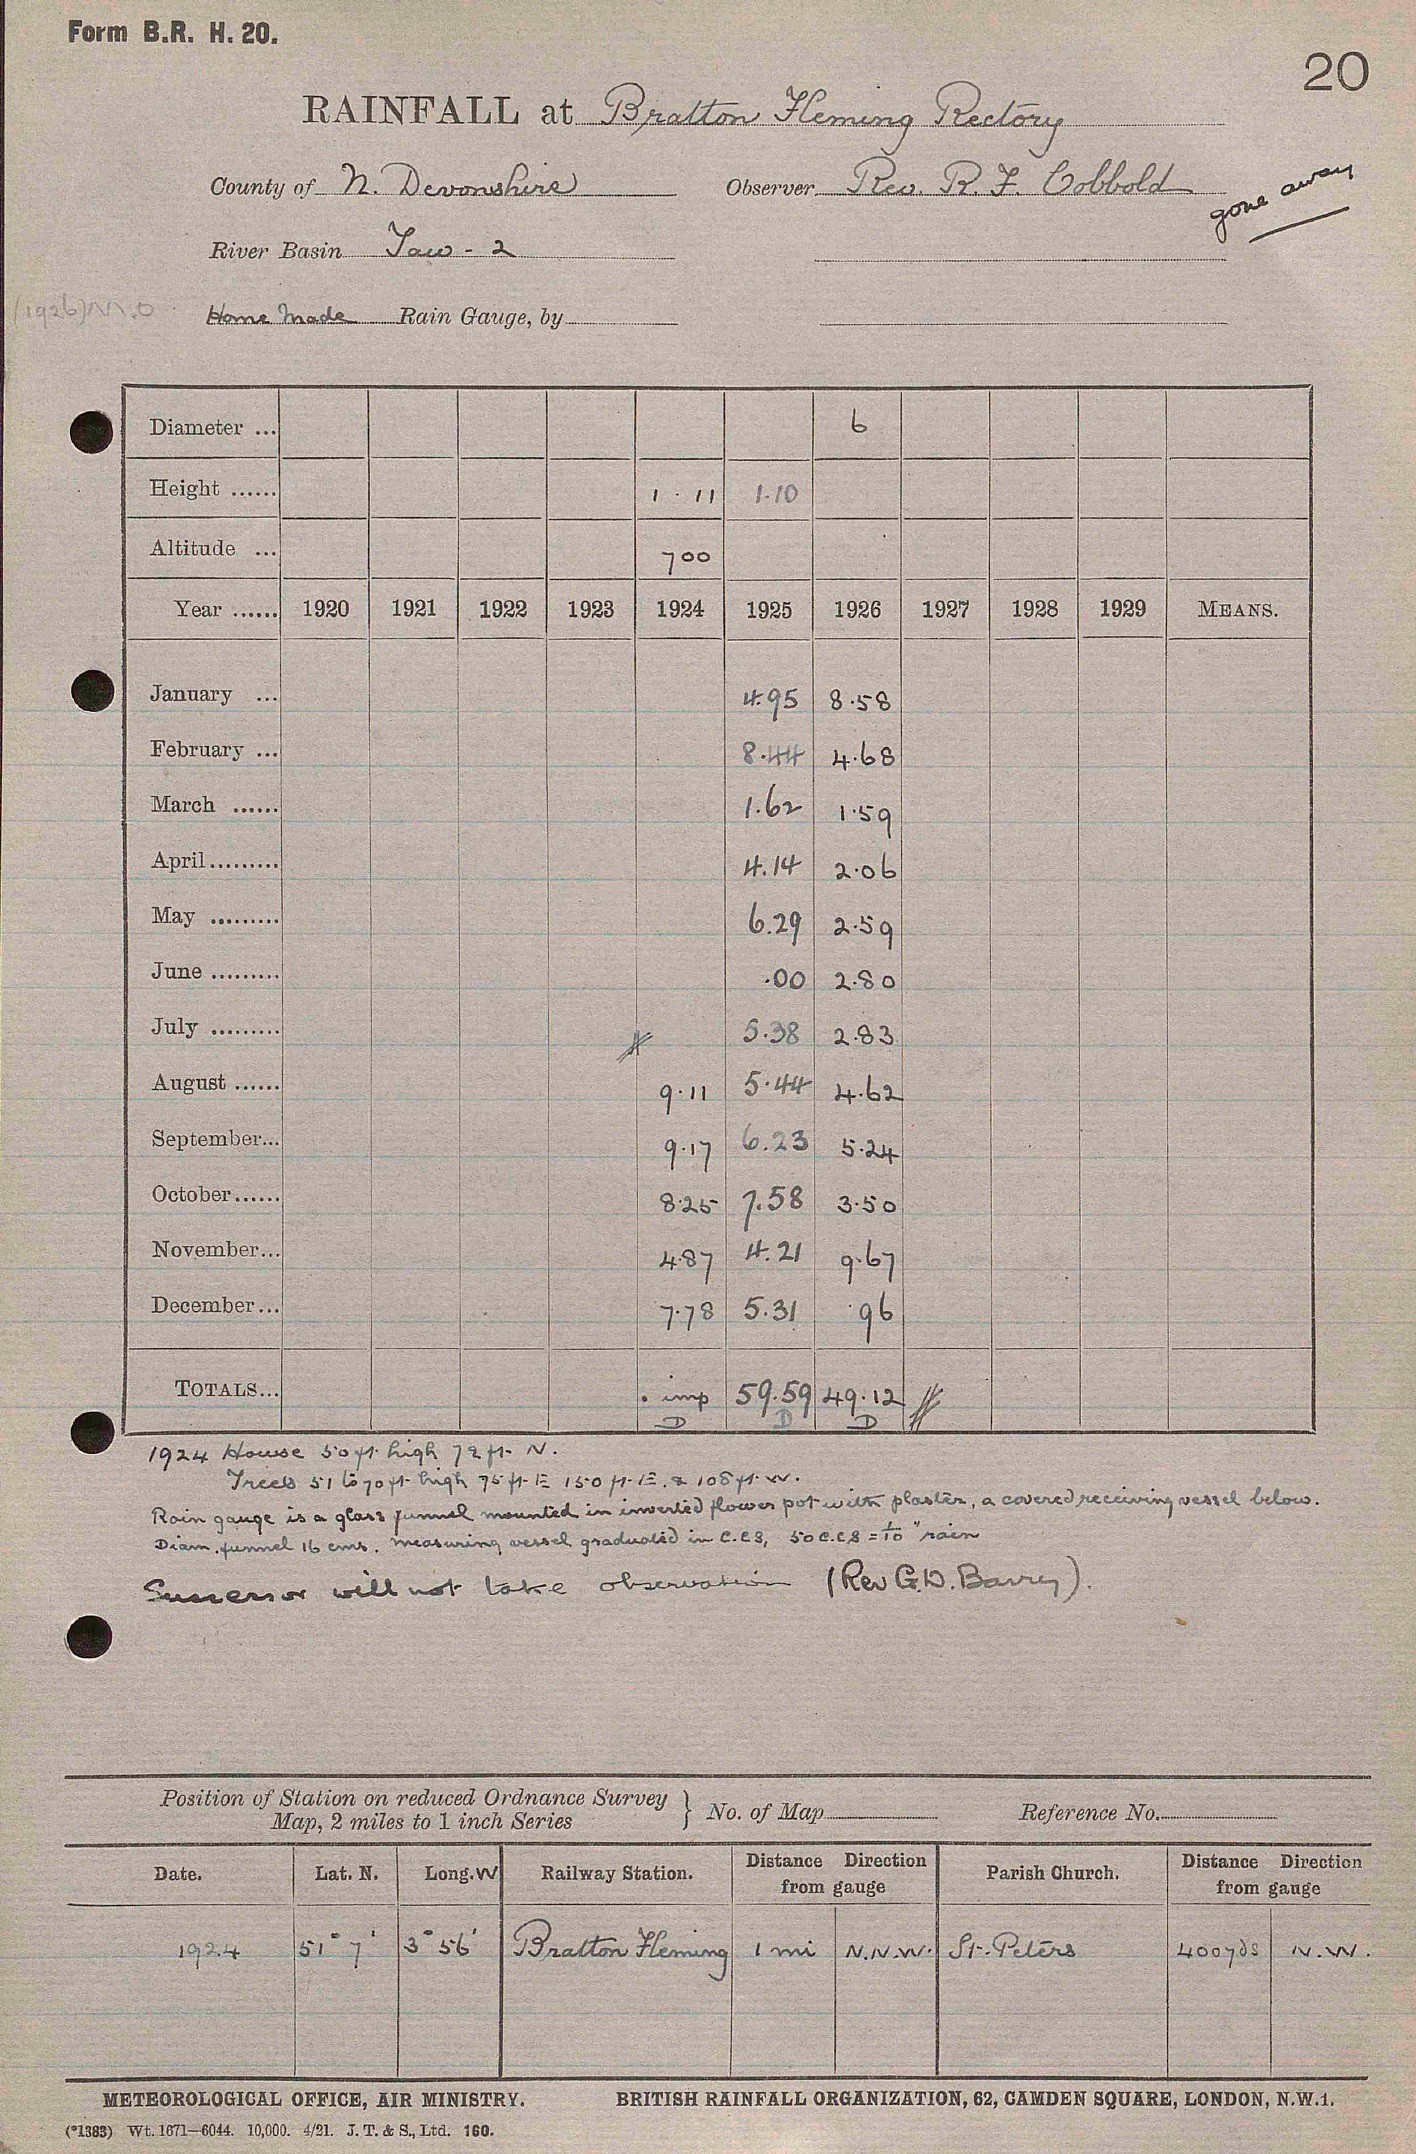 Form B.R. H. 20.
20
RAINFALL at Bratton Fleming Rectory
County of N. Devonshire Observer Rev. R. F. Cobbold
gone away
River Basin Taw - 2
(1926) M.O. Home Made Rain Gauge, by
Diameter ... 6
Height ...... 1 · 11 1·10
Altitude ... 700
Year ...... 1920 1921 1922 1923 1924 1925 1926 1927 1928 1929 MEANS.
January ... 4.95 8·58
February ... 8.44 4·68
March ...... 1.62 1·59
April......... 4.14 2·06
May ......... 6.29 2·59
June ......... .00 2·80
July ......... 5.38 2·83
August ...... 9·11 5·44 4·62
September... 9·17 6.23 5·24
October...... 8·25 7.58 3·50
November... 4·87 4.21 9·67
December... 7·78 5.31 ·96
TOTALS... . imp 59.59 49·12
D D D
1924 House 50 ft. high 72 ft. N.
Trees 51 to 70 ft. high 75 ft. E 150 ft. E. & 108 ft. W.
Rain gauge is a glass funnel mounted in inverted flower pot with plaster, a covered receiving vessel below.
Diam. funnel 16 cms. measuring vessel graduated in c.cs, 50 c.cs = 1/10" rain
Successor will not take observation (Rev G.D. Barry).
Position of Station on reduced Ordnance Survey
Map, 2 miles to 1 inch Series } No. of Map Reference No.
Date. Lat. N. Long. W Railway Station. Distance Direction from gauge Parish Church. Distance Direction from gauge
1924 51° 7' 3° 56' Bratton Fleming 1 mi N.N.W. St. Peters 400 yds N.W.
METEOROLOGICAL OFFICE, AIR MINISTRY. BRITISH RAINFALL ORGANIZATION, 62, CAMDEN SQUARE, LONDON, N.W.1.
(*1383) Wt. 1671—6044. 10,000. 4/21. J. T. & S., Ltd. 160.